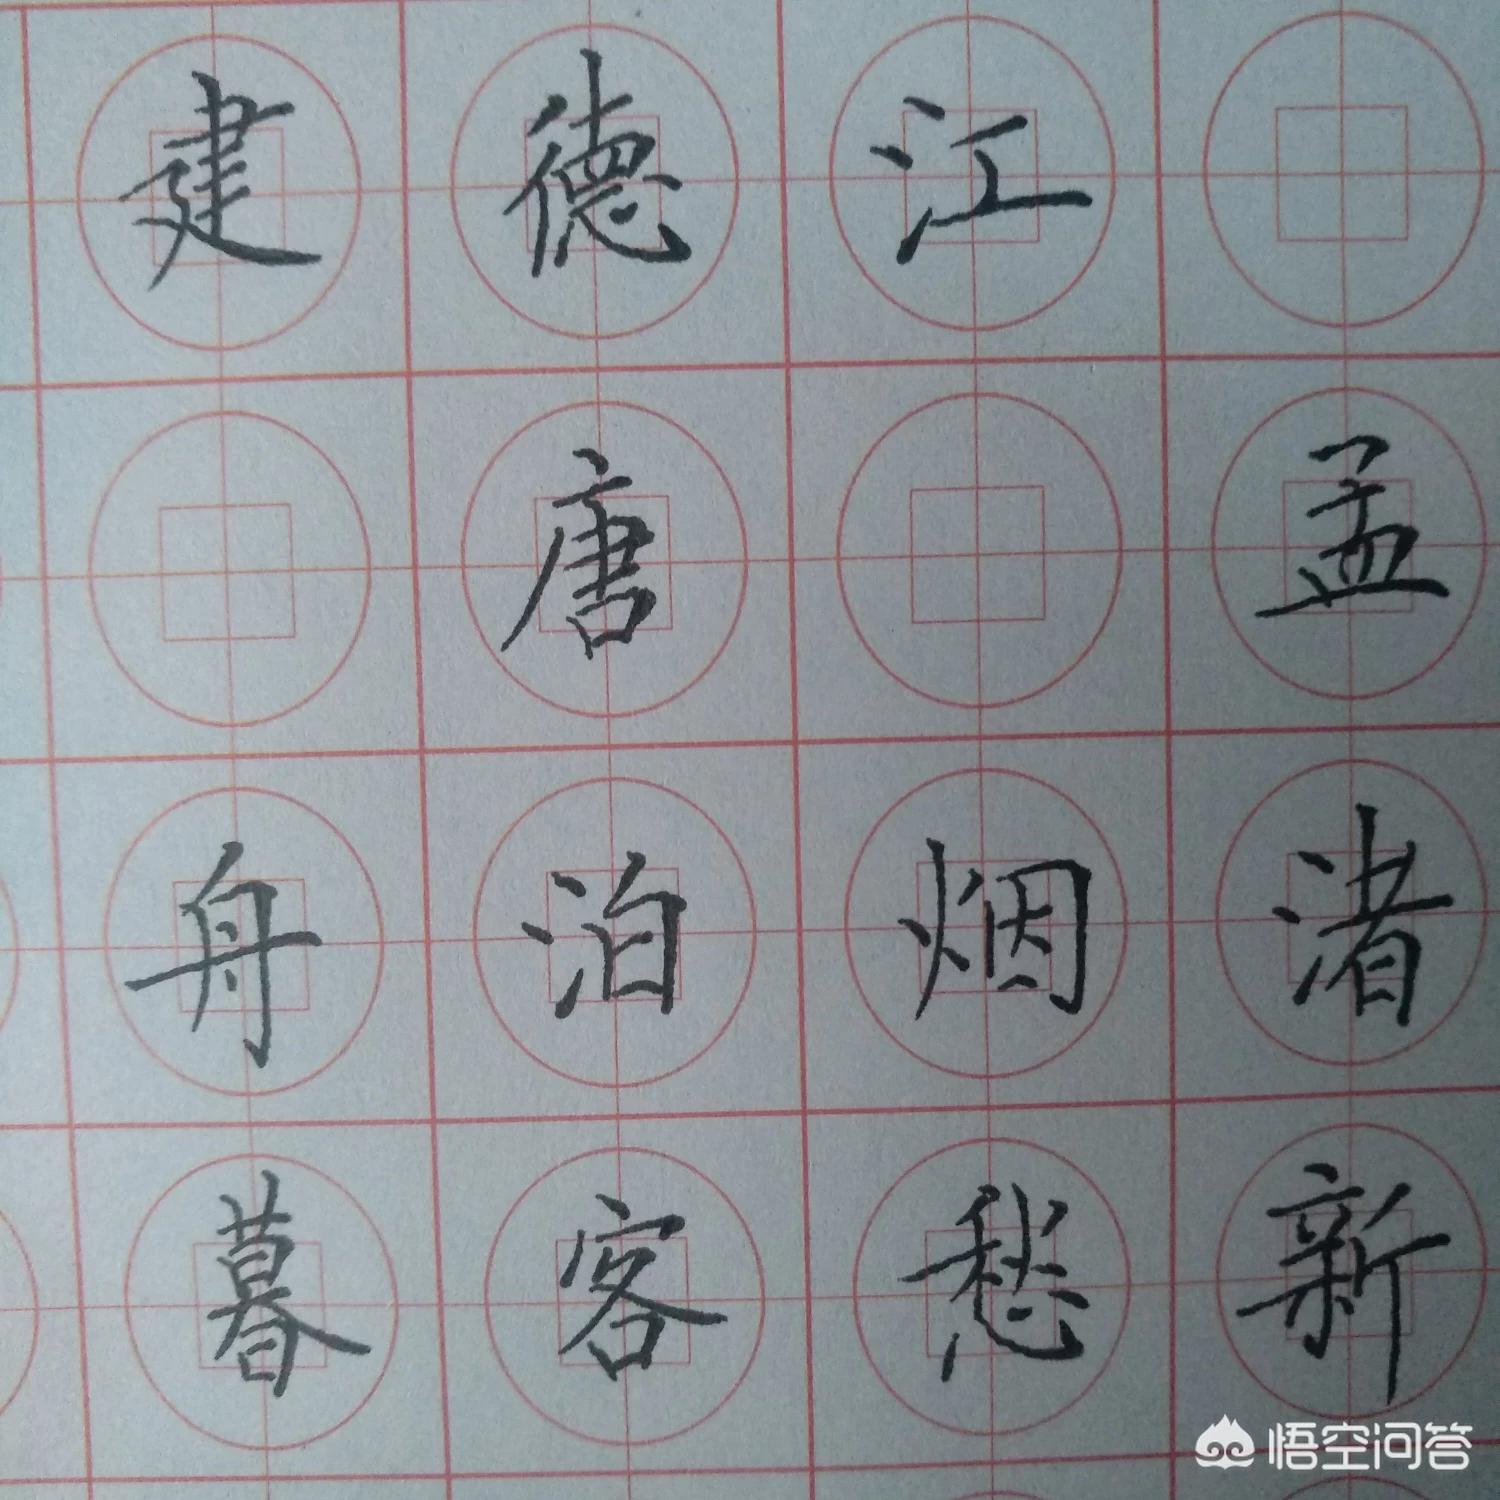 建德江
唐 孟
舟泊烟渚
暮客愁新
悟空问答